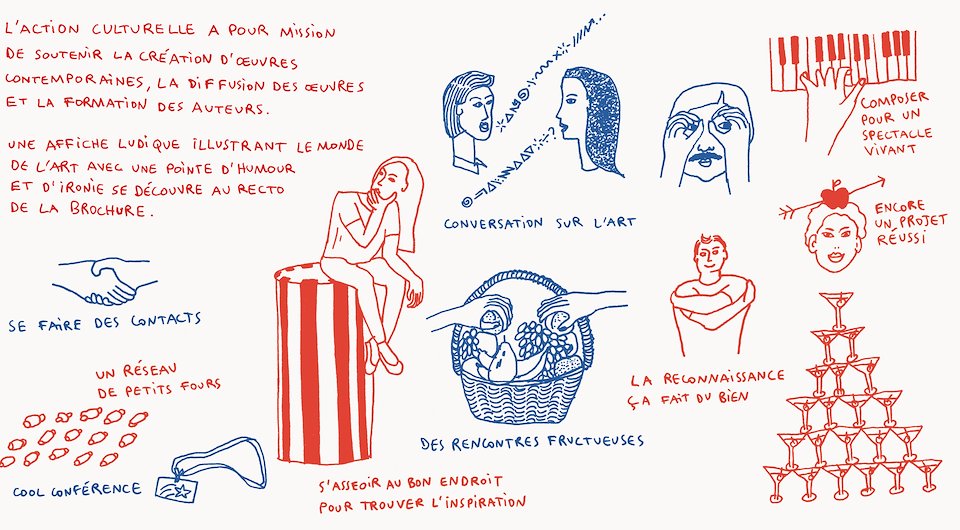 L'ACTION CULTURELLE A POUR MISSION
DE SOUTENIR LA CRÉATION D'ŒUVRES
CONTEMPORAINES, LA DIFFUSION DES ŒUVRES
ET LA FORMATION DES AUTEURS.
UNE AFFICHE LUDIQUE ILLUSTRANT LE MONDE
DE L'ART AVEC UNE POINTE D'HUMOUR
ET D'IRONIE SE DÉCOUVRE AU RECTO
DE LA BROCHURE.
CONVERSATION SUR L'ART
COMPOSER
POUR UN
SPECTACLE
VIVANT
ENCORE
UN PROJET
RÉUSSI
SE FAIRE DES CONTACTS
UN RÉSEAU
DE PETITS FOURS
COOL CONFÉRENCE
S'ASSEOIR AU BON ENDROIT
POUR TROUVER L'INSPIRATION
DES RENCONTRES FRUCTUEUSES
LA RECONNAISSANCE
ÇA FAIT DU BIEN